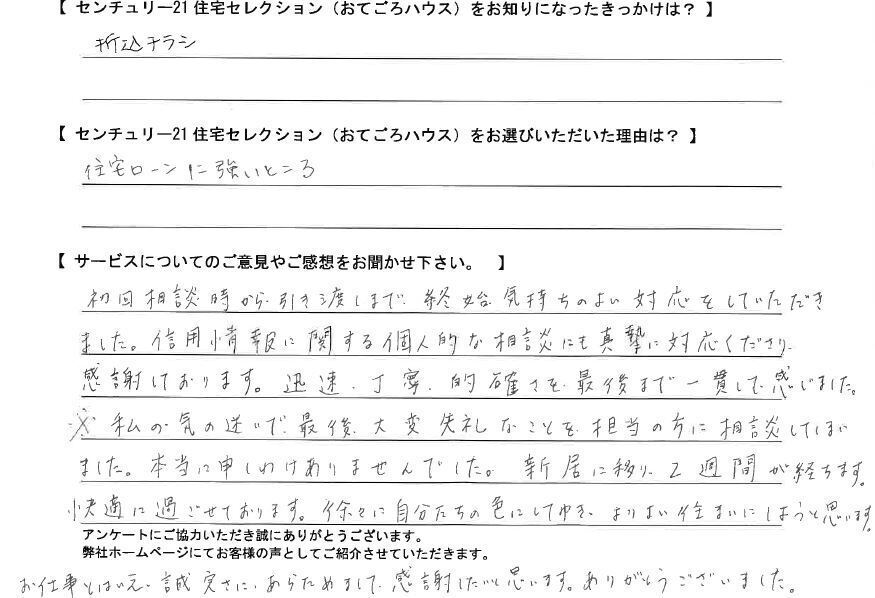 【 センチュリー21 住宅セレクション（おてごろハウス）をお知りになったきっかけは？ 】
折込チラシ
【 センチュリー21 住宅セレクション（おてごろハウス）をお選びいただいた理由は？ 】
住宅ローンに強いところ
【 サービスについてのご意見やご感想をお聞かせ下さい。 】
初回相談時から引き渡しまで、終始気持ちのよい対応をしていただき
ました。信用情報に関する個人的な相談にも真摯に対応くださり、
感謝しております。迅速、丁寧、的確さを最後まで一貫して感じました。
※私の気の迷いで、最後、大変失礼なことを担当の方に相談してしまい
ました。本当に申しわけありませんでした。新居に移り、2週間が経ちます。
快適に過ごせております。徐々に自分たちの色にしてゆき、よりよい住まいにしようと思います。
アンケートにご協力いただき誠にありがとうございます。
弊社ホームページにてお客様の声としてご紹介させていただきます。
お仕事とはいえ、誠実さに、あらためまして、感謝したいと思います。ありがとうございました。